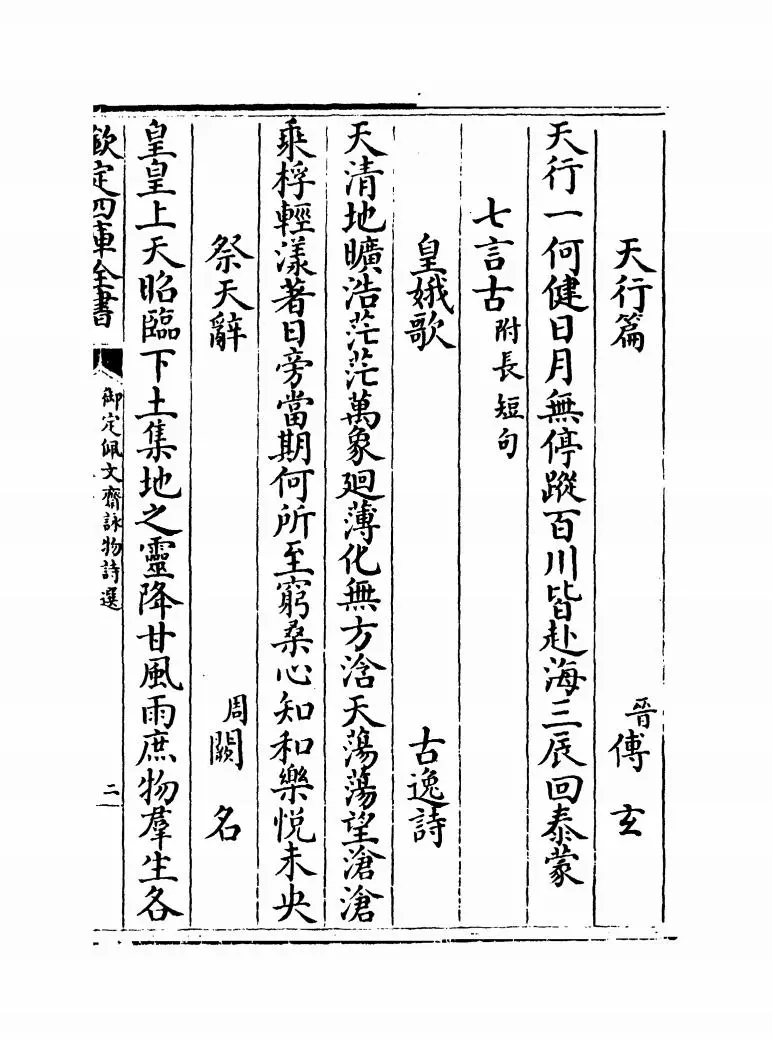 天行篇　晉傅玄
天行一何健日月無停蹤百川皆赴海三辰回泰蒙
七言古附長短句
皇娥歌　古逸詩
天清地曠浩茫茫萬象廻薄化無方浛天蕩蕩望滄滄
乘桴輕漾著日旁當期何所至窮桑心知和樂悅未央
祭天辭　周闕名
皇皇上天昭臨下土集地之靈降甘風雨庶物羣生各
欽定四庫全書　御定佩文齋詠物詩選　二